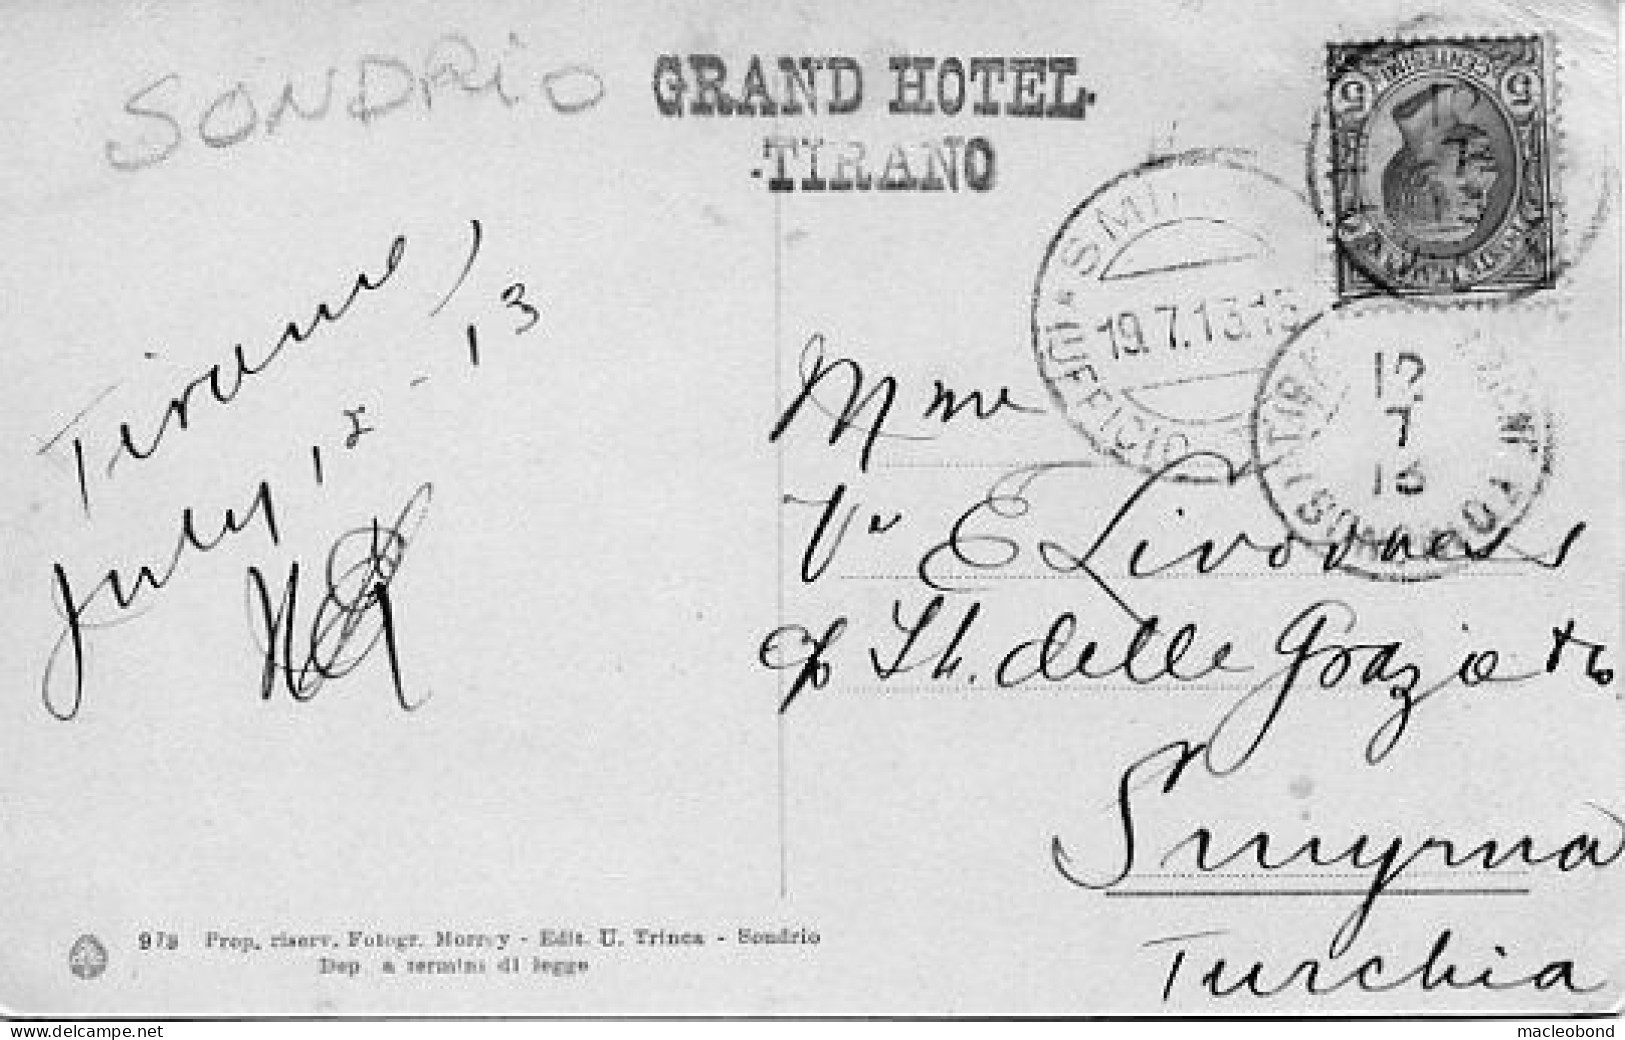 SONDRIO
GRAND HOTEL
TIRANO
5 CENTESIMI 5
SMI
19.7.13.13
UFFICIO
12
7
13
Tirano
July 12 - 13
Mme
Vve E Livornese
c/o Sh. delle Grazie
Smyrna
Turchia
973 Prop. riserv. Fotogr. Morroy - Edit. U. Trinca - Sondrio
Dep a termini di legge
www.delcampe.net
macleobond